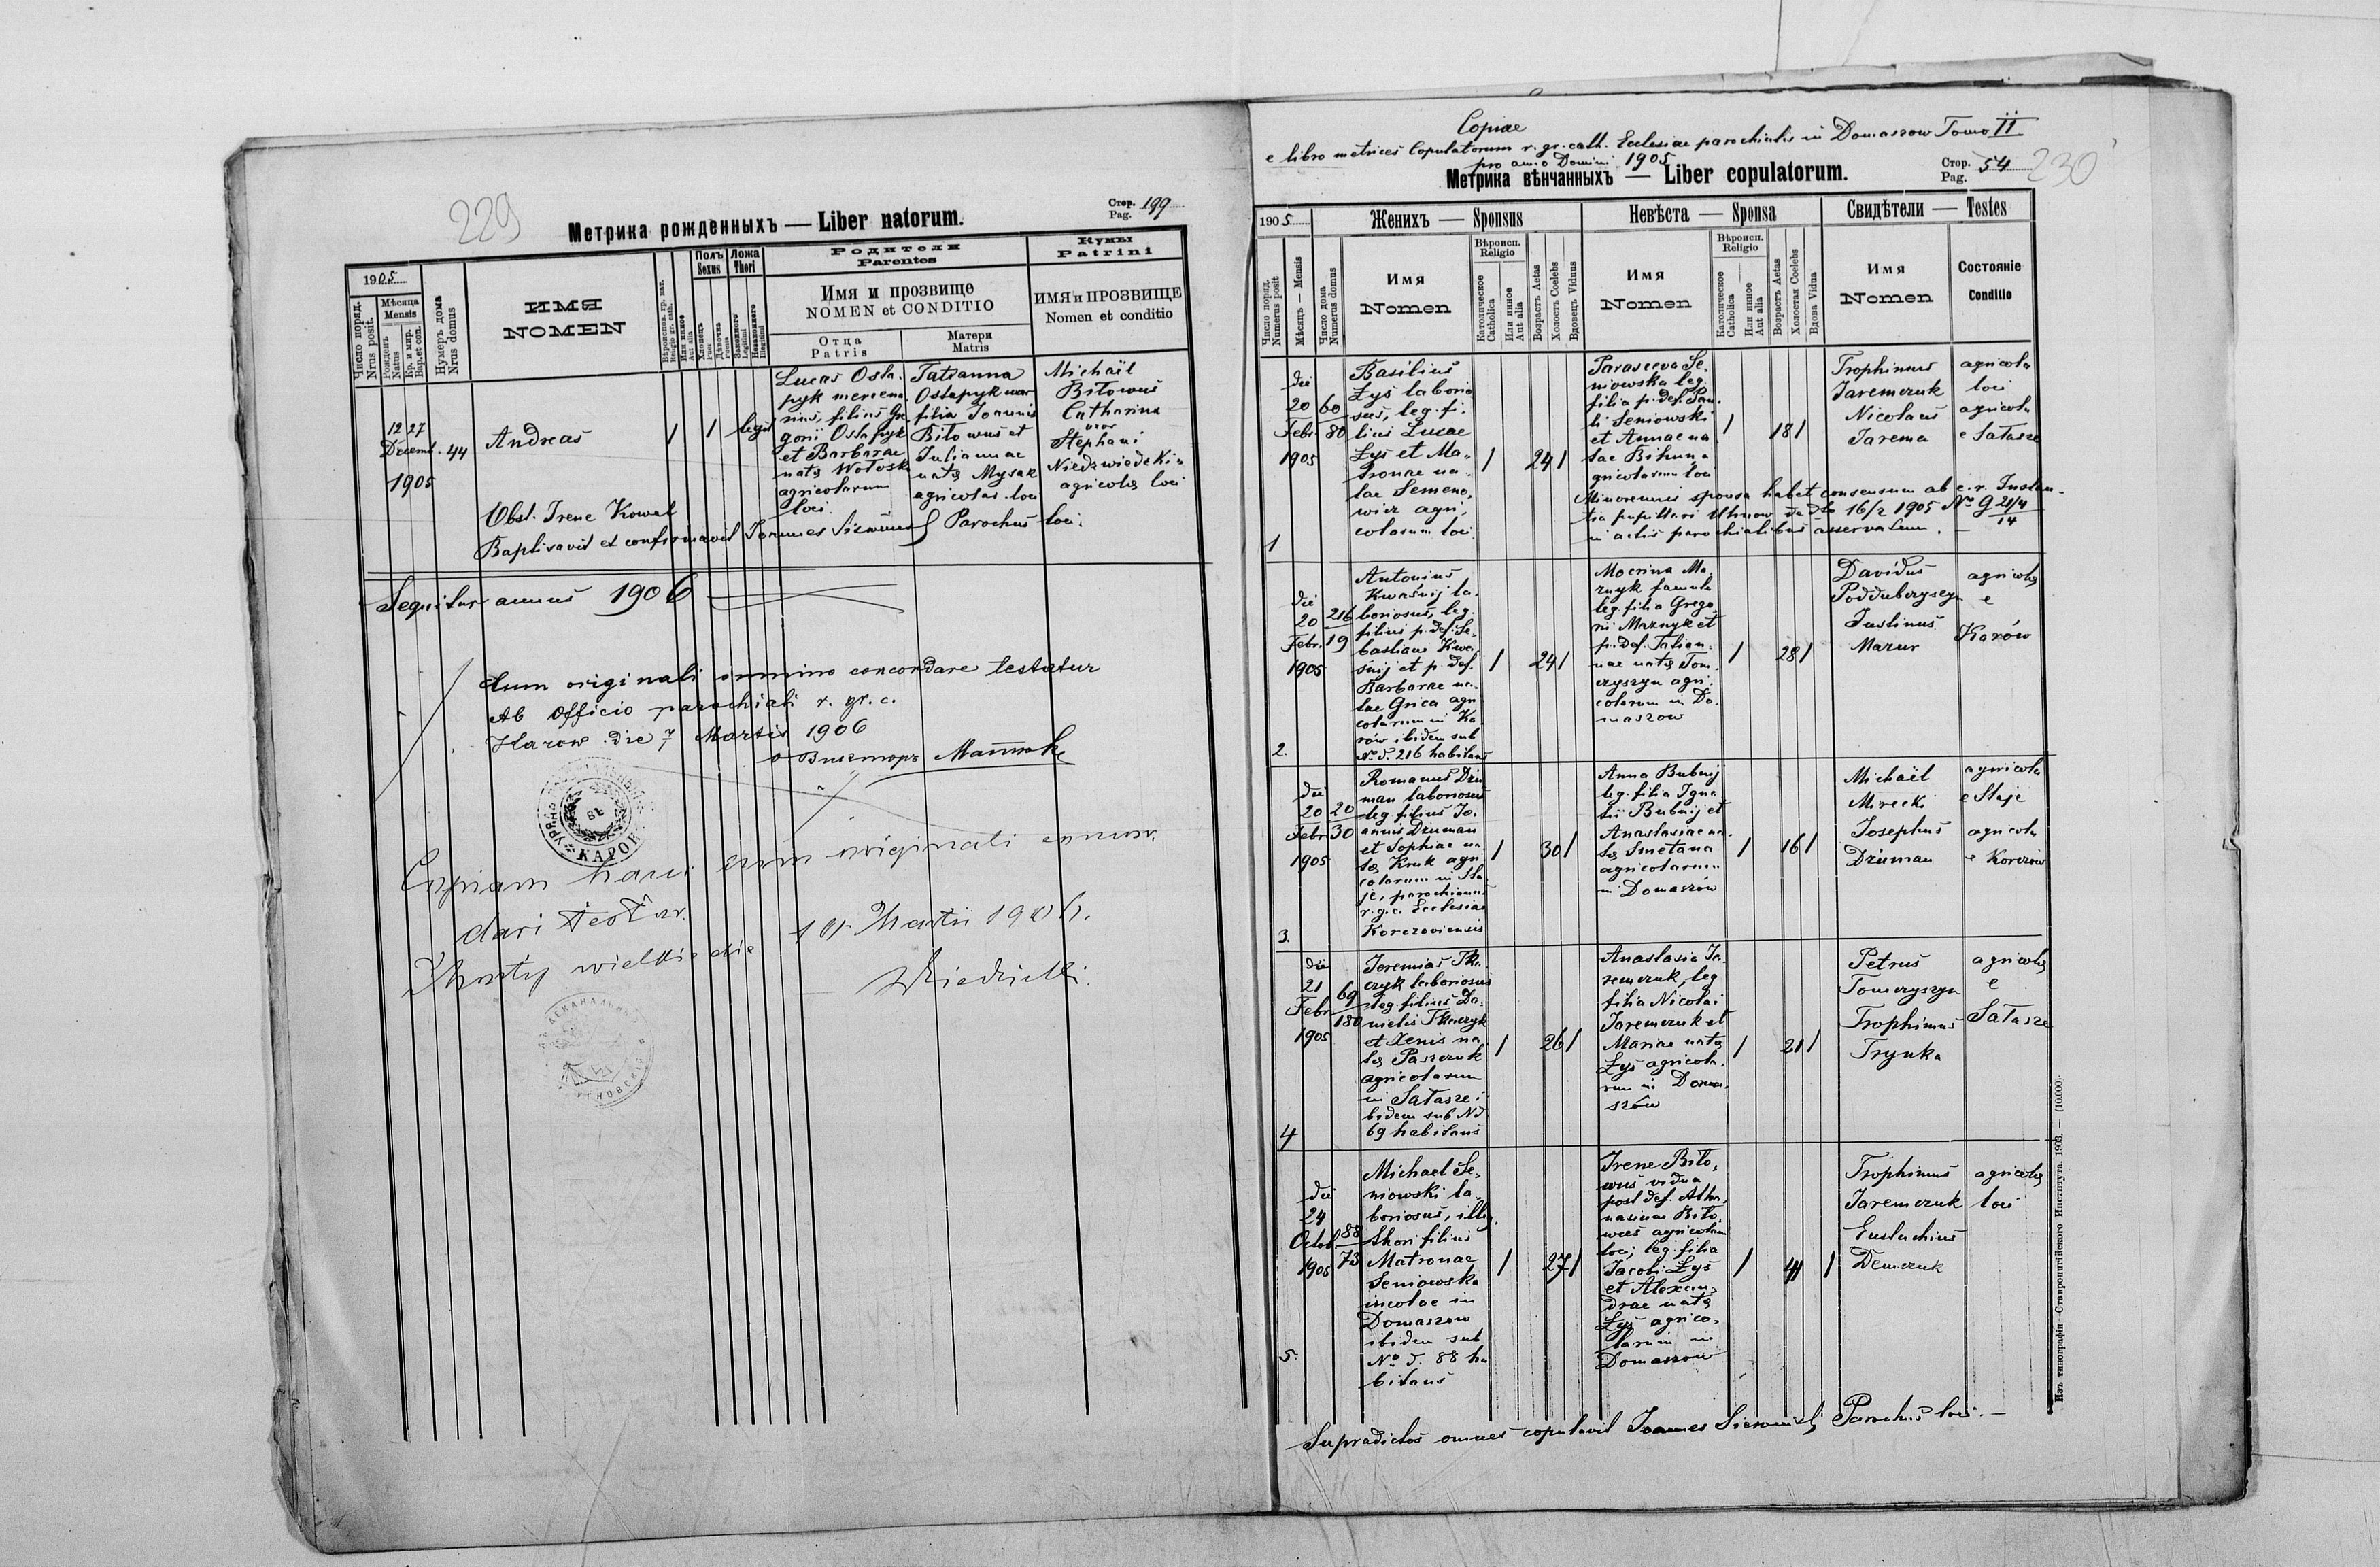 229
Метрика рожденныхъ — Liber natorum.
Стор. Pag. 199
1905
Число поряд. Nrus posit.
Мѣсяца Mensis
Рожденъ Natus
Кр. и мир. Bap. et con.
Нумеръ дома Nrus domus
ИМЯ
NOMEN
Полъ Sexus
Хлопець Puer
Дѣвочка Puella
Ложа Thori
Законного Legitimi
Незаконного Illegitimi
Родители
Parentes
Имя и прозвище
NOMEN et CONDITIO
Отца
Patris
Матери
Matris
Кумы
Patrini
ИМЯ и ПРОЗВИЩЕ
Nomen et conditio
12 27
Decemb.
1905
44
Andreas
1
1
legit
Lucas Osta-
pyk mercena
rius, filius Gre
gorii Ostapyk
et Barbarae
natę Wołosk
agricolarum
loci
Tatianna
Ostapyk uxor
filia Joannis
Biłowus et
Julianae
natę Mysak
agricolas loci
Michaël
Biłowus
Catharina
uxor
Stephani
Niedzwiedzki
agricolę loci
Obst. Irene Kowal
Baptisavit et confirmavit Joannes Parochus loci.
Sequitur annus 1906
Cum originali omnino concordare testatur
Ab Officio parochiali r. gr. c.
Karów die 7 Martis 1906
КАРОВ
Copiam hanc cum originali concor-
dari testor.
wielkie die 10 Martii 1906.
Copiae
e libro metrices Copulatorum r. gr. cath. Ecclesiae parochialis in Domaszow Tomo II
pro anno Domini 1905
Метрика вѣнчанныхъ — Liber copulatorum.
Стор. Pag. 54
230
1905
Женихъ — Sponsus
Невѣста — Sponsa
Свидѣтели — Testes
Число поряд. Numerus posit
Мѣсяцъ — Mensis
Число дома Numerus domus
Имя
Nomen
Вѣроисп. Religio
Католическое Catholica
Или иное Aut alia
Возрастъ Aetas
Холостъ Coelebs
Вдовецъ Viduus
Имя
Nomen
Вѣроисп. Religio
Католическое Catholica
Или иное Aut alia
Возрастъ Aetas
Холостая Coelebs
Вдова Vidua
Имя
Nomen
Состояніе
Conditio
1
die
20
Febr.
1905
60
80
Basilius
Łyś laborio
sus, leg. fi-
lius Lucae
Łyś et Ma-
tronae na-
tae Semeno-
wicz agri-
colarum loci
1
24 1
Parasceva Se-
niowska leg.
filia p. def. Pau-
li Seniowski
et Annae na
tae Bihun a
gricolarum loci
1
18 1
Trophimus
Jaremczuk
Nicolaus
Jarema
agricola
loci
agricola
e Sałasze
Minorennis sponsa habet consensum ab c. r. Instan-
tia pupillari Uhnow de dto 16/2 1905 No G 21/4
14
in actis parochialibus asservatum.
2.
die
20
Febr.
1905
216
19
Antonius
Kwaśnij la-
boriosus, leg.
filius p. def. Se-
bastiani Kwa
śnij et p. def.
Barbarae na-
tae Grica agri
colarum in Ka
rów ibidem sub
No d. 216 habitans
1
24 1
Mocrina Ma-
znyk famula
leg. filia Grego-
rii Maznyk et
p. def. Tatian-
nae natę Tom-
czyszyn agri-
colarum in Do-
maszow
1
28 1
Davidus
Poddubczyszyn
Justinus
Mazur
agricolę
e
Karów
3.
die
20
Febr
1905
20
30
Romanus Dziu
man laboriosus
leg filius Jo-
annis Dziuman
et Sophiae na
tę Kruk agri
colarum in Sta
je, parochianus
r. g. c. Ecclesiae
Korczoviensis
1
30 1
Anna Bubnij
leg. filia Igna-
tii Bubnij et
Anastasiae na-
tę Smetana
agricolarum
in Domaszów
1
16 1
Michaël
Mirecki
Josephus
Dziuman
agricola
e Staje
agricola
e Korczów
4
die
21
Febr
1905
69
180
Jeremias Tka
czyk laboriosus
leg. filius Da-
nielis Tkaczyk
et Xenis na-
tę Paszczuk
agricolarum
in Sałasze i-
bidem sub Nd
69 habitans
1
26 1
Anastasia Ja-
remczuk, leg
filia Nicolai
Jaremczuk et
Mariae natę
Łyś agricola-
rum in Doma-
szów
1
21 1
Petrus
Tomczyszyn
Trophimus
Trynka
agricolę
e
Sałasze
5.
die
24
Octob
1905
88
73
Michael Se-
niowski la-
boriosus, illeg.
thori filius
Matronae
Seniowska
incolae in
Domaszow
ibidem sub
No d. 88 ha
bitans
1
27 1
Irene Biło-
wus vidua
post def. Atha-
nasium Biło-
wus agricolam
loci, leg. filia
Jacobi Łyś
et Alexan-
drae natę
Łyś agrico-
larum in
Domaszow
1
41 1
Trophimus
Jaremczuk
Eustachius
Demczuk
agricolę
loci
Supradictos omnes copulavit Joannes Parochus loci.
Изъ типографіи Ставропигійского Института. 1903. — (10.000).